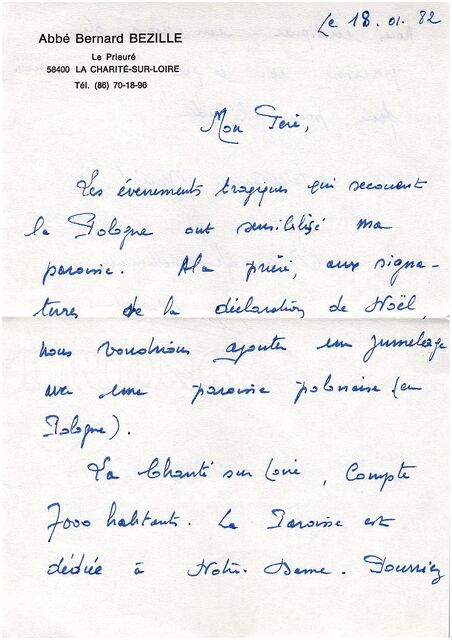 Le 18.01.82
Abbé Bernard BEZILLE
Le Prieuré
58400 LA CHARITÉ-SUR-LOIRE
Tél. (86) 70-18-96
Mon Père,
Les évenements tragiques qui secouent
la Pologne ont sensibilisé ma
paroisse. A la prière, aux signa-
tures de la déclaration de Noël,
nous voudrions ajouter un jumelage
avec une paroisse polonaise (en
Pologne).
La Charité sur Loire, compte
7000 habitants. La Paroisse est
dédiée à Notre-Dame. Pourriez